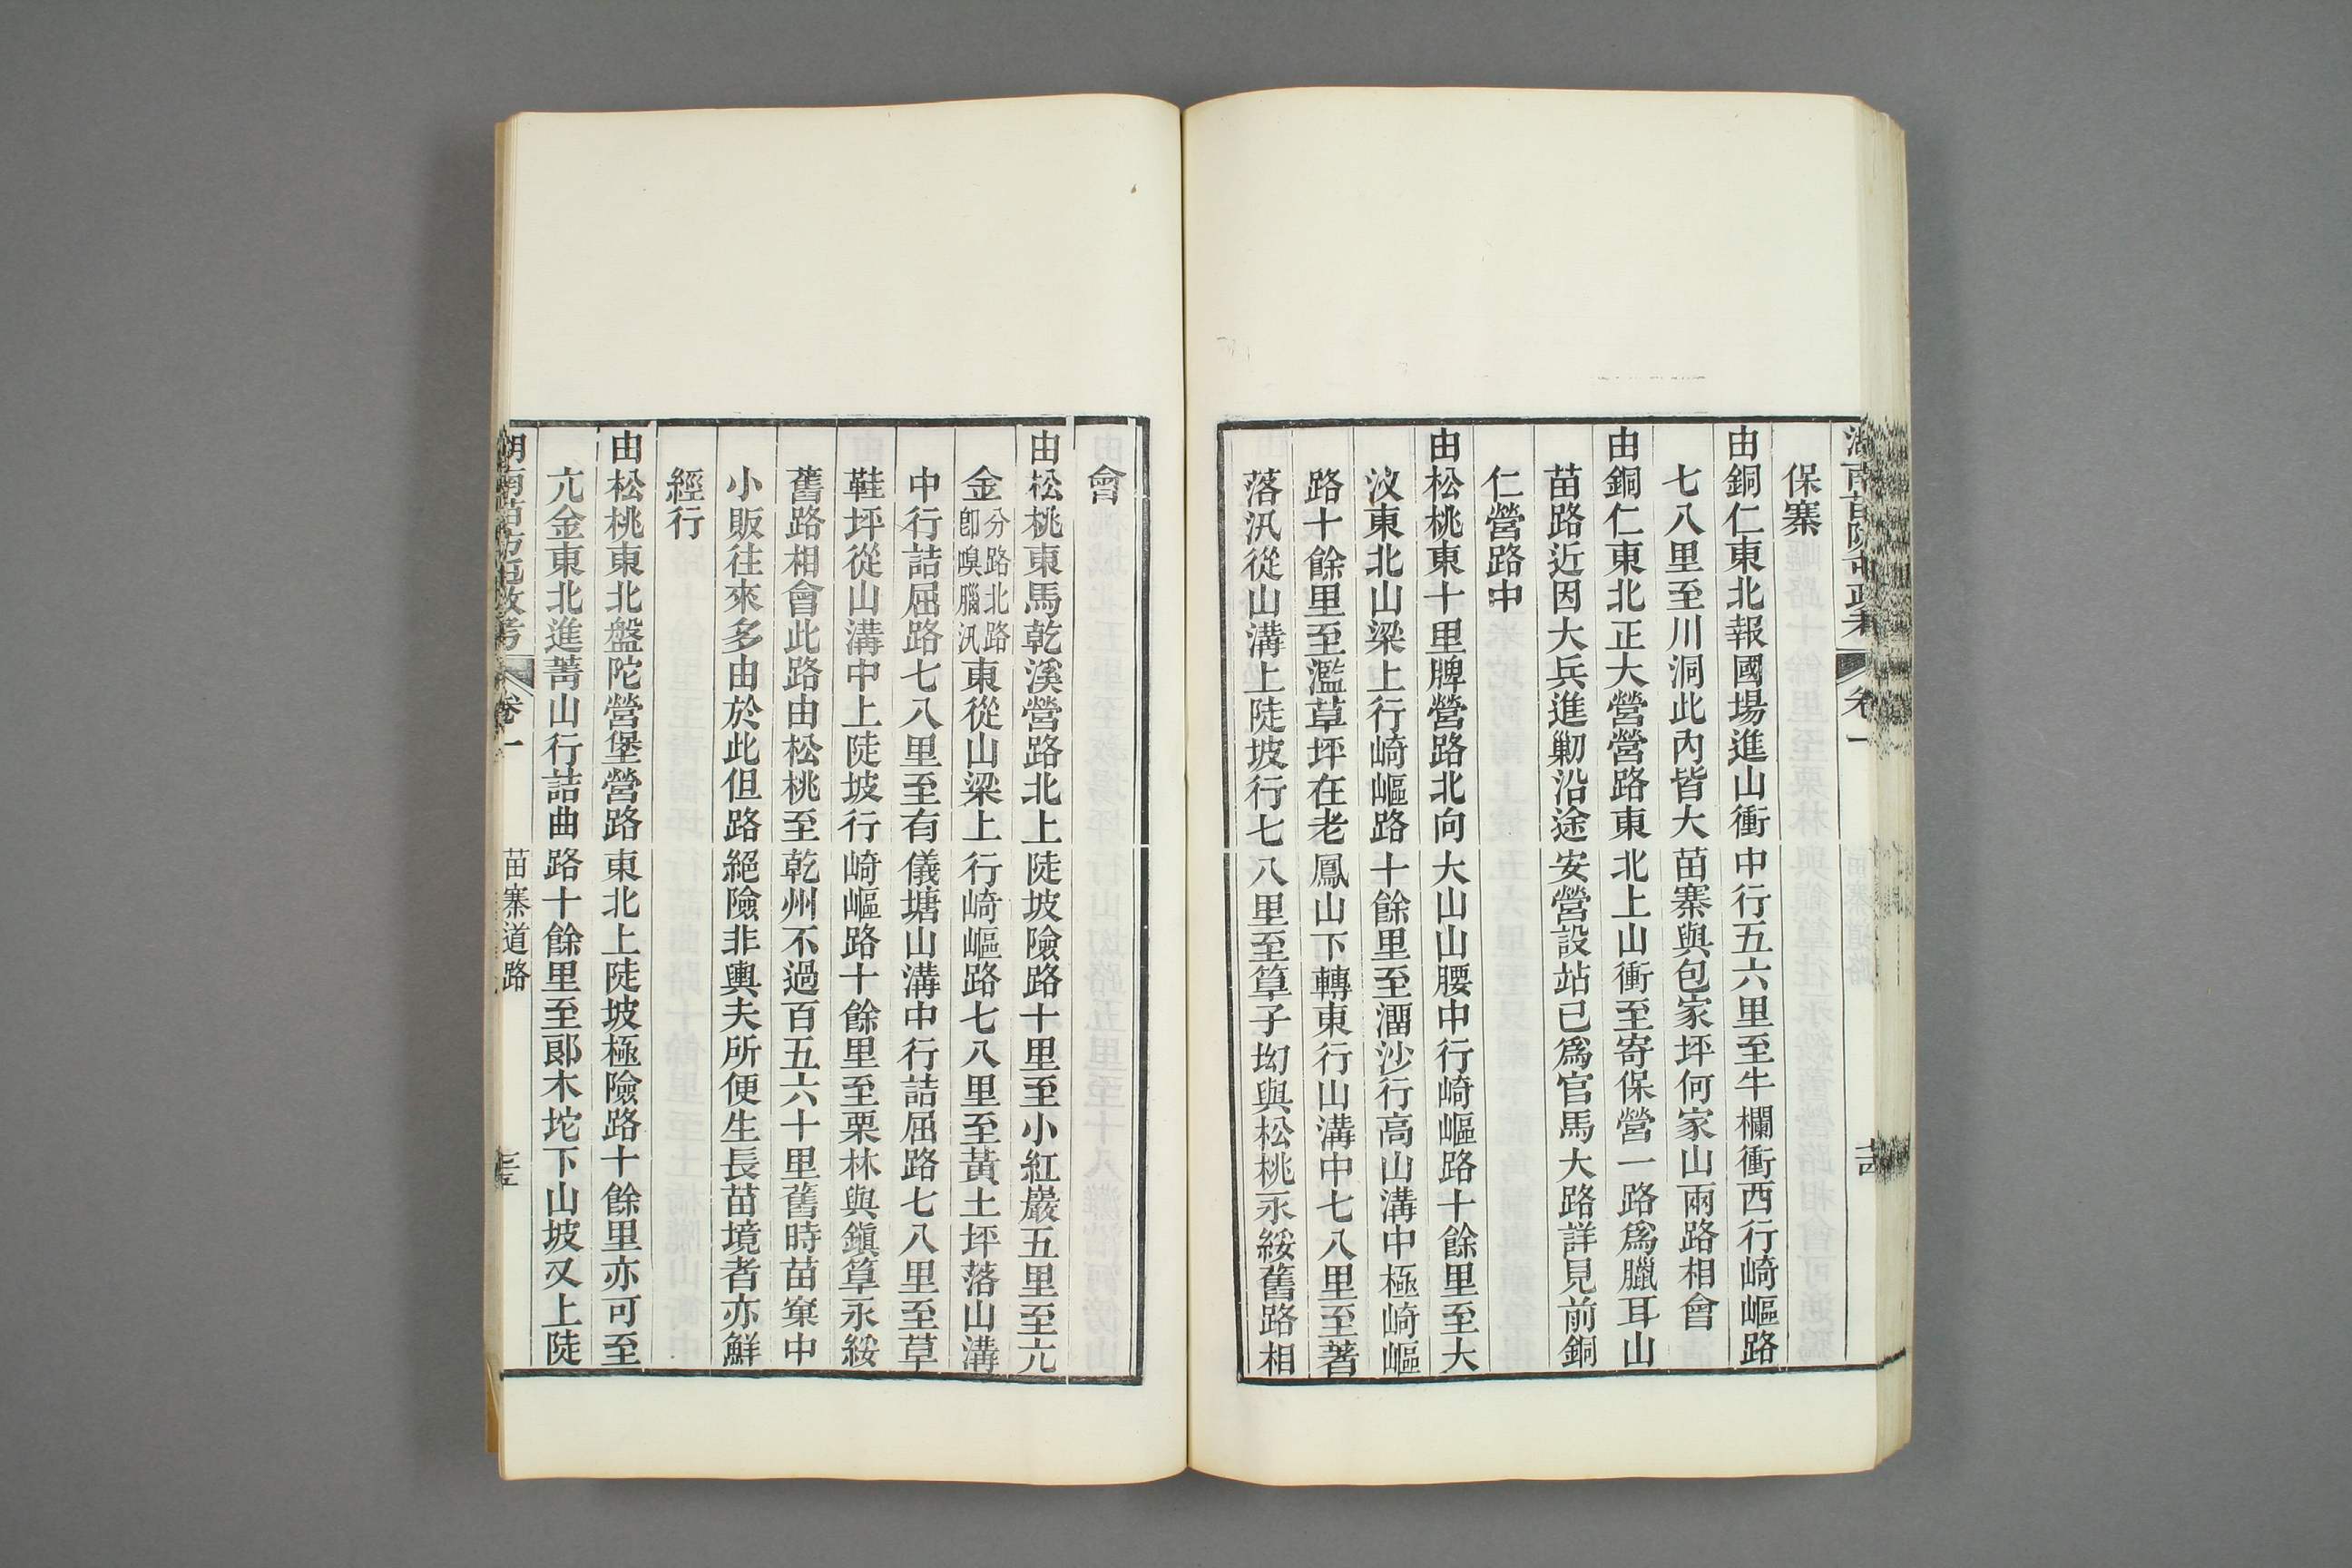 保寨
由銅仁東北報國場進山衝中行五六里至牛欄衝西行崎嶇路
七八里至川洞此內皆大苗寨與包家坪何家山兩路相會
由銅仁東北正大營營路東北上山衝至寄保營一路爲臘耳山
苗路近因大兵進勦沿途安營設站已爲官馬大路詳見前銅
仁營路中
由松桃東十里牌營路北向大山山腰中行崎嶇路十餘里至大
汶東北山梁上行崎嶇路十餘里至溜沙行高山溝中極崎嶇
路十餘里至濫草坪在老鳳山下轉東行山溝中七八里至著
落汛從山溝上陡坡行七八里至草子坳與松桃永綏舊路相
會
由松桃東馬乾溪營路北上陡坡險路十里至小紅巖五里至亢
金分路北路卽嗅腦汛東從山梁上行崎嶇路七八里至黃土坪落山溝
中行詰屈路七八里至有儀塘山溝中行詰屈路七八里至草
鞋坪從山溝中上陡坡行崎嶇路十餘里至栗林與鎭筸永綏
舊路相會此路由松桃至乾州不過百五六十里舊時苗寨中
小販往來多由於此但路絕險非輿夫所便生長苗境者亦鮮
經行
由松桃東北盤陀營堡營路東北上陡坡極險路十餘里亦可至
亢金東北進菁山行詰曲路十餘里至郞木坨下山坡又上陡
湖南苗防屯政考 卷一 苗寨道路